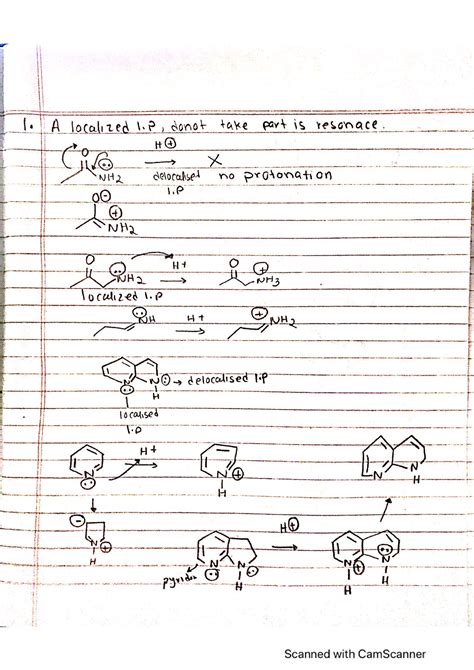 1. A localized l.p, donot take part is resonace.
H⊕
O
NH2 → X
delocalised no protonation
l.p
O⊖
⊕
NH2
O H+ O ⊕
NH2 → NH3
localized l.p
NH H+ → ⊕ NH2
N N → delocalised l.p
H
localised
l.p
H+ →
N N ⊕ N N
H H
⊖
N ⊕ H⊕ →
H
pyridine N N ⊕ N N
H H H
Scanned with CamScanner